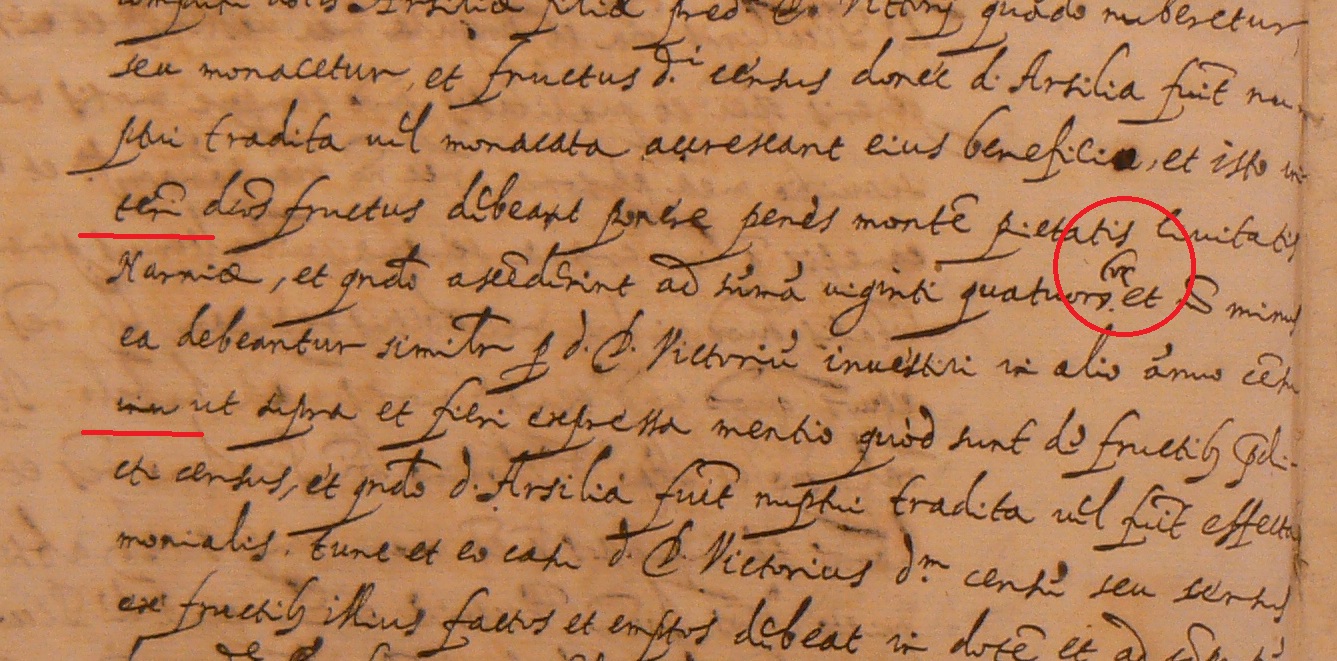 Arsiliæ filiæ pred. C. Victorij quādo nuberetur
seu monacetur, et fructus d.i census donec d. Arsilia fuit nu
ptui tradita vel monacata accrescant eius beneficio, et isto in
teri dcos fructus debeant ponere penès montē pietatis Civitatis
Narniæ, et qndo ascēderint ad sumā viginti quatuor et minus
ea debeantur similr p d. C. Victoriū investiri in alio annuo cēsu
ut supra et fieri expressa mentio quòd sunt de fructib pdi
cti census, et qndo d. Arsilia fuit nuptui tradita vel fuit effecta
monialis. tunc et eo casu d. C. Victorius d.m censū seu census
ex fructib illius factos et emptos debeat in dotē et ad